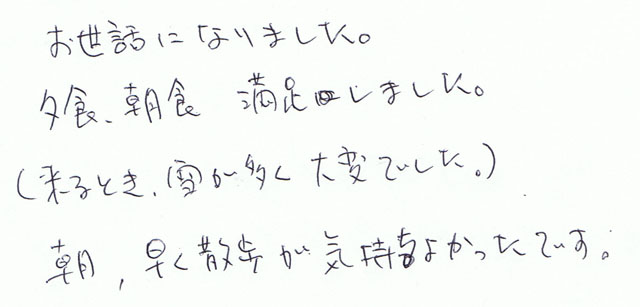 お世話になりました。
夕食、朝食 満足しました。
(来るとき、雪が多く大変でした。)
朝、早く散歩が気持ちよかったです。